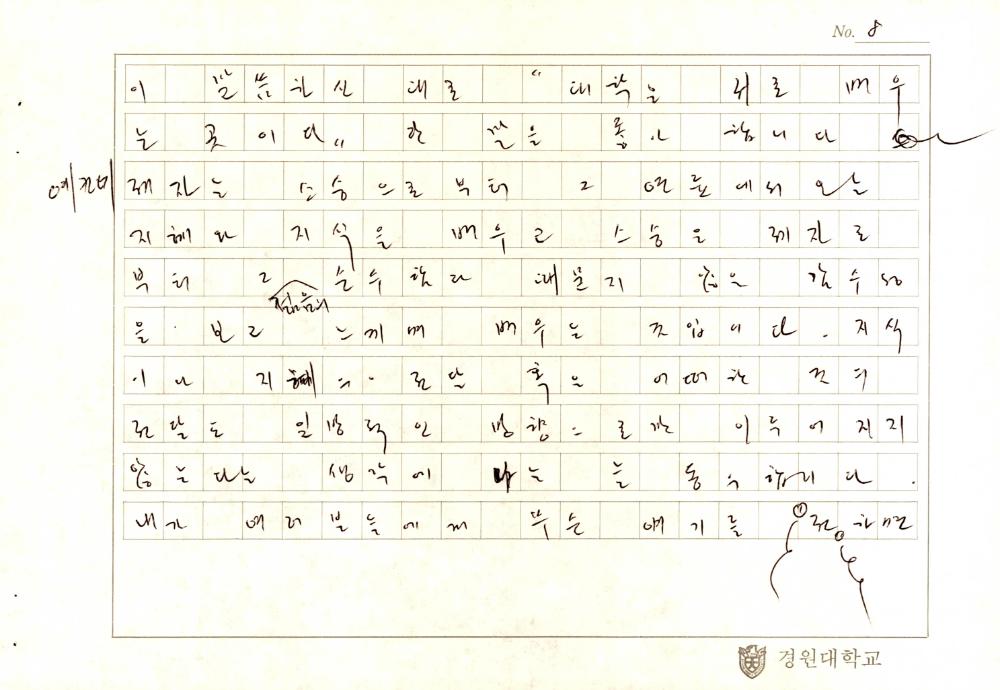 No. 8
이 말씀하신 대로 "대학은 서로 배우
는 곳이다" 란 말을 좋아합니다
예컨대 제자는 스승으로부터 그 연륜에서 오는
지혜와 지식을 배우고 스승은 제자로
부터 그 젊음의 순수함과 때묻지 않은 감수성
을 보고 느끼며 배우는 것입니다. 지식
이나 지혜의 전달 혹은 어떠한 것의
전달도 일방적인 방향으로만 이루어지지
않는다는 생각에 나는 늘 동의합니다.
내가 여러분들에게 무슨 얘기를 전하면
경원대학교